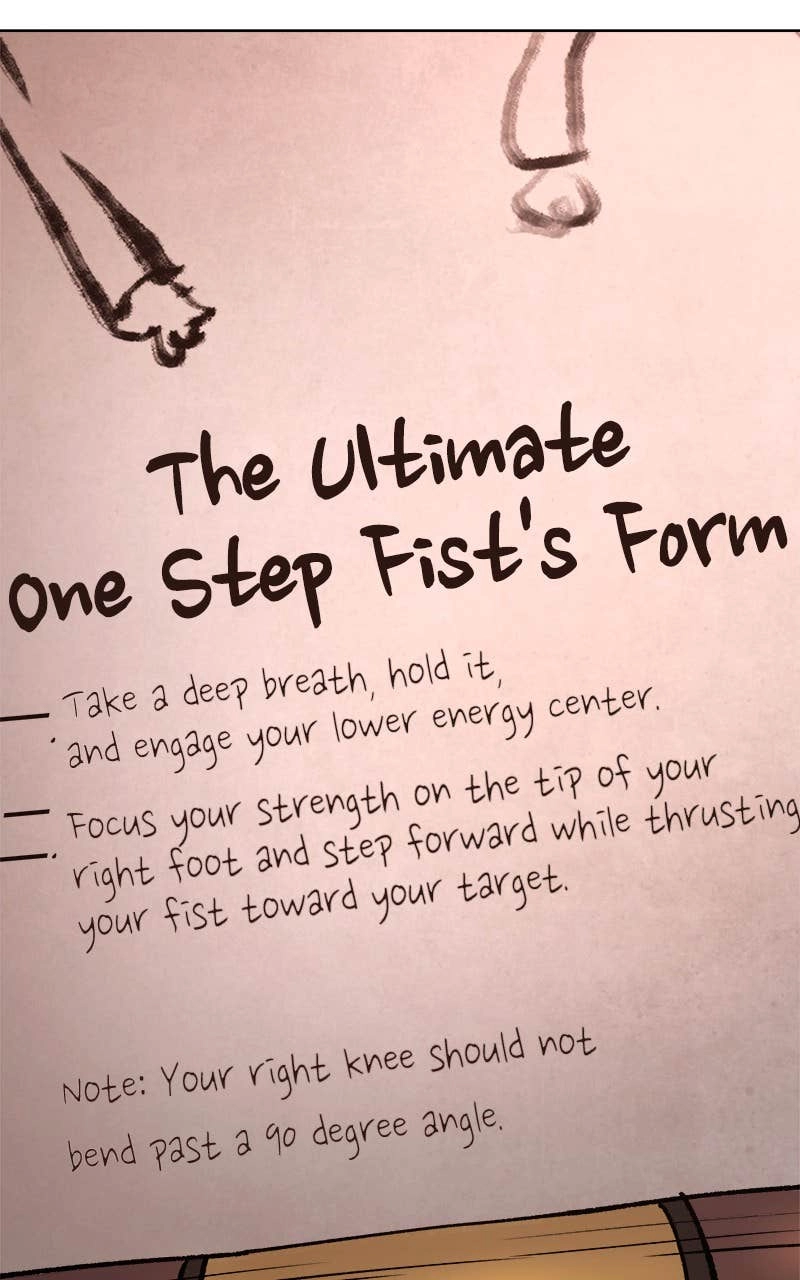 The Ultimate
One Step Fist's Form
一. Take a deep breath, hold it,
and engage your lower energy center.
二. Focus your strength on the tip of your
right foot and step forward while thrusting
your fist toward your target.
Note: Your right knee should not
bend past a 90 degree angle.